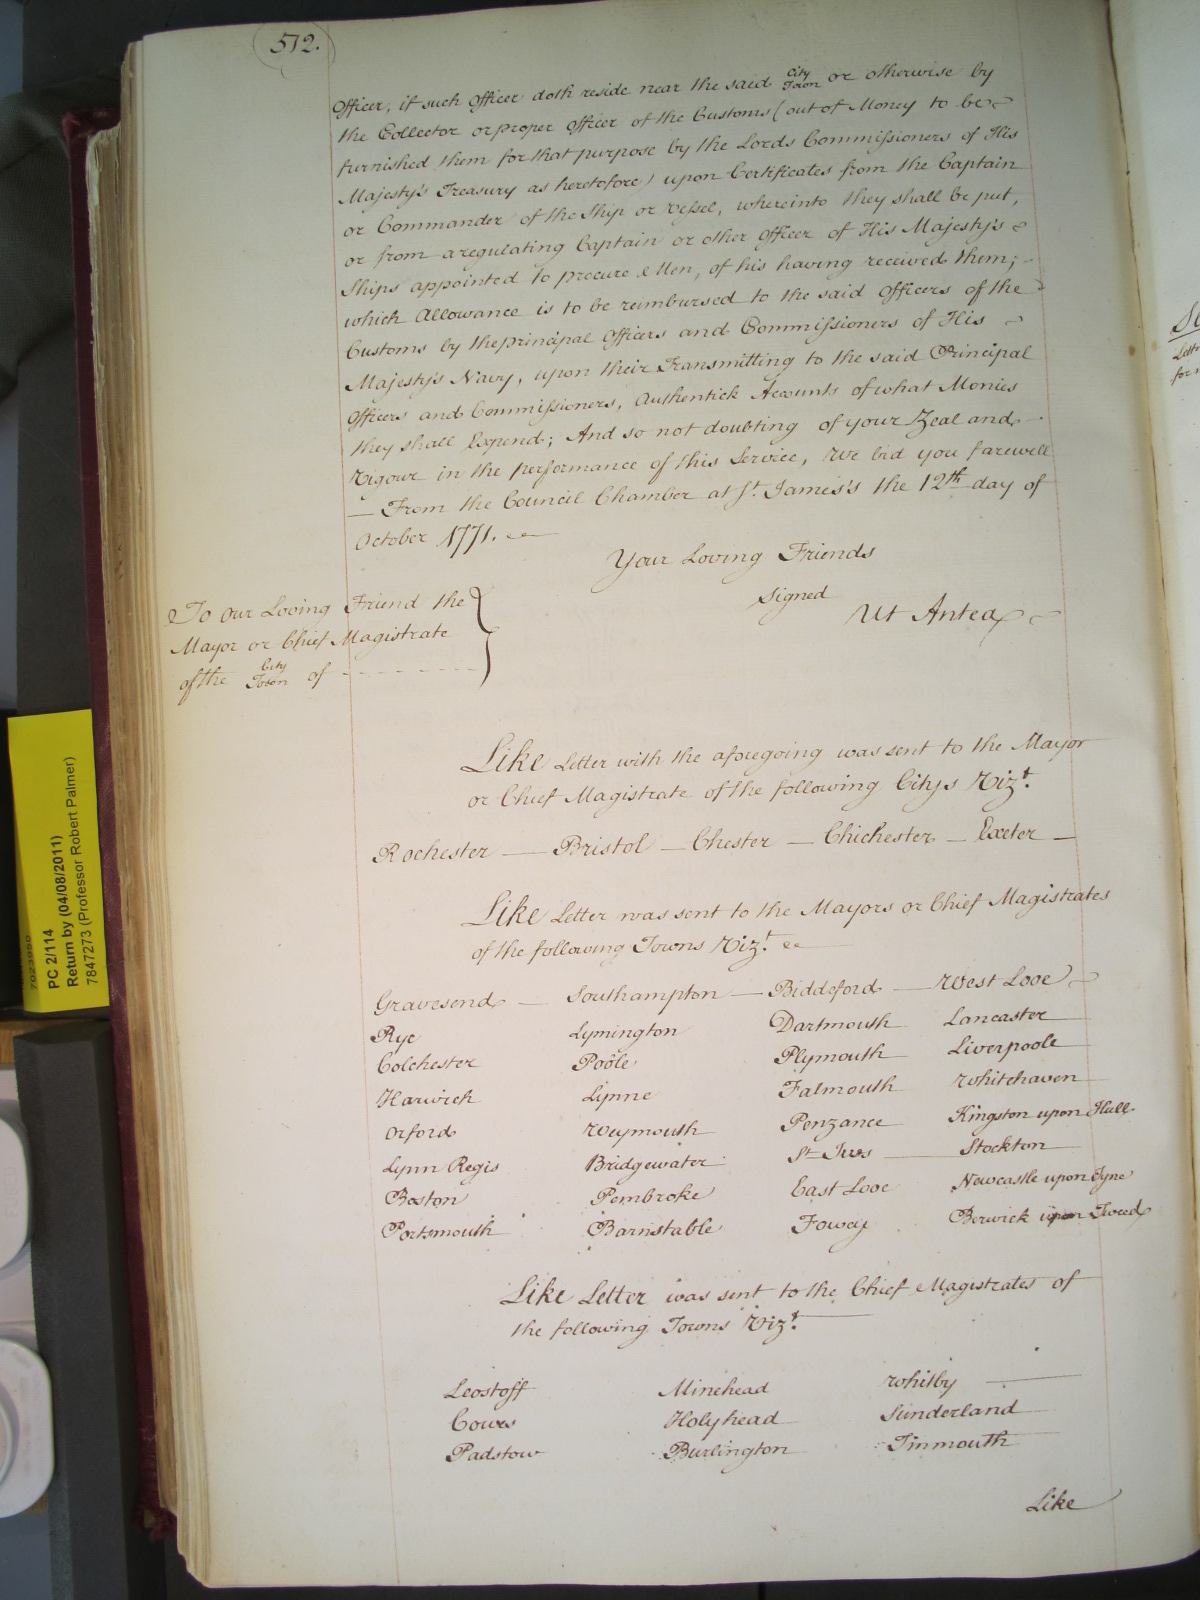 512.
Officer, if such Officer doth reside near the said City Town or otherwise by
the Collector or proper Officer of the Customs (out of Money to be
furnished them for that purpose by the Lords Commissioners of His
Majesty's Treasury as heretofore) upon Certificates from the Captain
or Commander of the Ship or Vessel, whereinto they shall be put,
or from a regulating Captain or other Officer of His Majesty's
Ships appointed to procure Men, of his having received them;
which Allowance is to be reimbursed to the said Officers of the
Customs by the principal Officers and Commissioners of His
Majesty's Navy, upon their Transmitting to the said Principal
Officers and Commissioners, Authentick Accounts of what Monies
they shall Expend; And so not doubting of your Zeal and
Vigour in the performance of this Service, We bid you farewell
— From the Council Chamber at St. James's the 12th day of
October 1771.
Your Loving Friends
Signed
Ut Antea
To Our Loving Friend the
Mayor or Chief Magistrate
of the City Town of
Like Letter with the aforegoing was sent to the Mayor
or Chief Magistrate of the following Citys Vizt.
Rochester — Bristol — Chester — Chichester — Exeter —
Like Letter was sent to the Mayors or Chief Magistrates
of the following Towns Vizt.
Gravesend — Southampton — Biddeford — West Looe
Rye Lymington Dartmouth Lancaster
Colchester Poole Plymouth Liverpoole
Harwich Lynne Falmouth Whitehaven
Orford Weymouth Penzance Kingston upon Hull
Lynn Regis Bridgewater St Ives Stockton
Boston Pembroke East Looe Newcastle upon Tyne
Portsmouth Barnstable Fowey Berwick upon Tweed
Like Letter was sent to the Chief Magistrates of
the following Towns Vizt.
Leostoff Minehead Whitby
Cowes Holyhead Sunderland
Padstow Burlington Tinmouth
Like
PC 2/114
Return by (04/08/2011)
7847273 (Professor Robert Palmer)